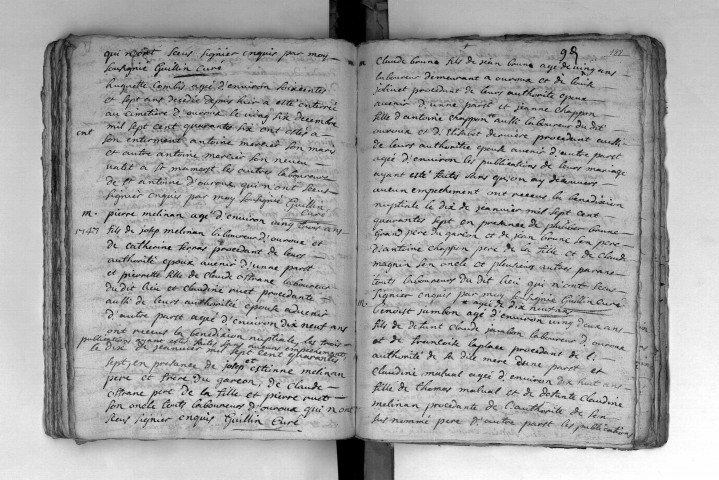 qui n'ont sceus signier enquis par moy
soussigné Guillin Curé
huguette Combis agée d'environ soixentes
et sept ans decedée depuis hier a esté enterrée
au cimetiere d'ouroux le vingt six decembre
mil sept cent quarantes six ont estés a
ent
son enterment antoine mercier son mary
et autre antoine mercier son neveu
valet a st mamert les autres laboureurs
de st antoine d'ouroux qui n'ont sceus
signier enquis par moy soussigné Guillin
Curé
m. pierre melinan agé d'environ vingt trois ans
1747 fils de josep melinan laboureur d'ouroux et
de catherine terras procedant de leurs
authorité epoux avenir d'une part
et pierrette fille de Claude laboureur
du dit lieu et claudine ruet procedante
aussi de leurs authorité epouse avenir
d'autre part agée d'environ dix neuf ans
ont receus la benediction nuptiale les trois
publications ayant estés faites sans aucuns empechements
le dix de jeanvier mil sept cent quarantes
sept en presance de josep et estienne melinan
pere et frere du garcon, de claude
pere de la fille et pierre ruet
son oncle touts laboureurs d'ouroux qui n'ont
sceus signier enquis Guillin Curé
95
Claude brune fils de jean brune agé de vingt ans
laboureur demeurant a ouroux et de
jolinet procedant de leurs authorité epoux
avenir d'une part et jeanne chappon
fille d'antoine chappon aussi laboureur du dit
ouroux et d' procedant aussi
de leurs authoritée epouse avenir d'autre part
agée d'environ les publications de leurs mariage
ayant esté faites sans qu'on ay decouvers
aucun empechement ont receus la benediction
nuptiale le dix de jeanvier mil sept cent
quarantes sept en presance de philiber brune
grand pere du garcon et de jean brune son pere
d'antoine chappon pere de la fille et de Claude
magnin son oncle et plusieurs autres parans
touts laboureurs du dit lieu qui n'ont sceus
signier enquis par moy soussigné Guillin Curé
m. benoist jambon agé d'environ vingt deux ans
fils de defunt claude jambon laboureur d'ouroux
et de francoise laplace procedant de l'
authorité de sa dite mere d'une part et
Claudine matual agée d'environ dix huit ans
fille de thomas matual et de defunte Claudine
melinan procedante de l'authorité de son
sus nommé pere d'autre part les publications